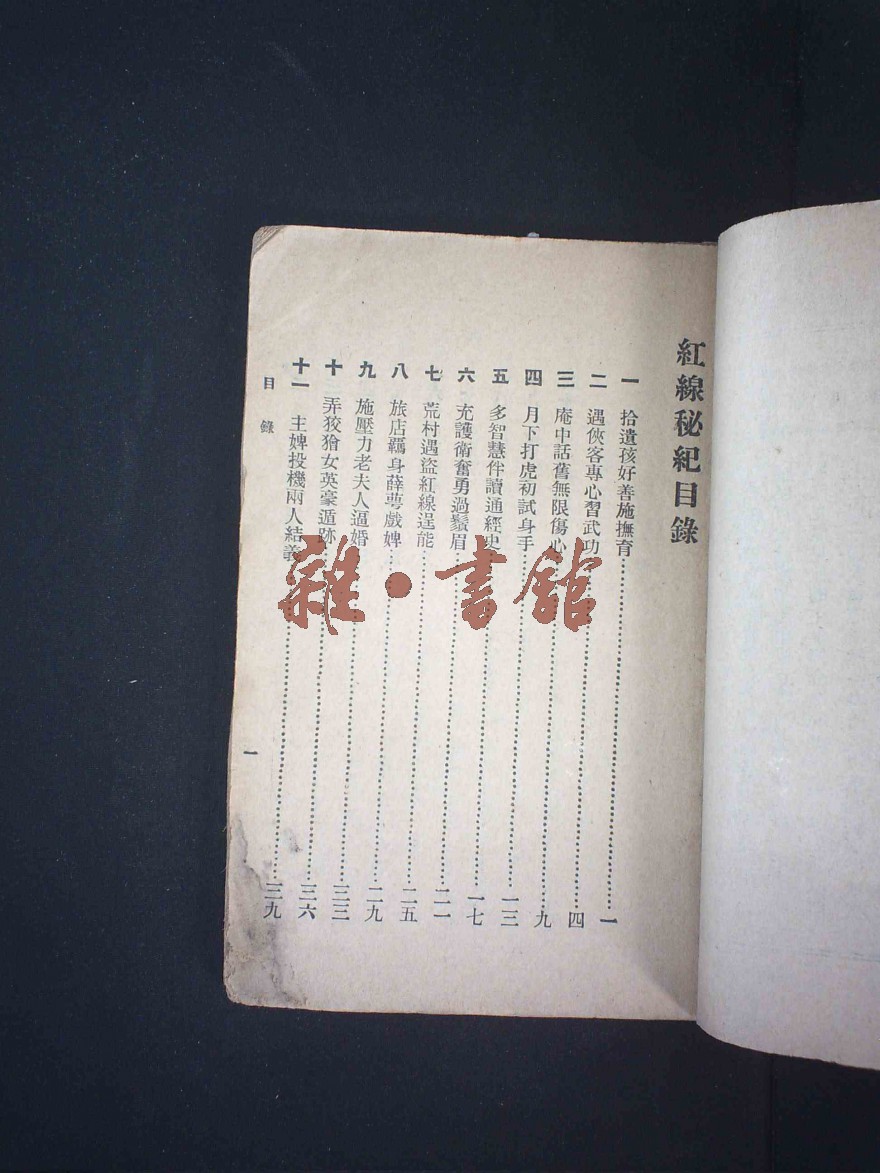 紅線秘紀目錄
一 拾遺孩好善施撫育……一
二 遇俠客專心習武功……四
三 庵中話舊無限傷心……九
四 月下打虎初試身手……一三
五 多智慧伴讀通經史……一七
六 充護衛奮勇過鬚眉……二一
七 荒村遇盜紅線逞能……二五
八 旅店羈身薛萼戲婢……二九
九 施壓力老夫人逼婚……三三
十 弄狡獪女英豪遁跡……三六
十一 主婢投機兩人結義……三九
目錄
一
雜·書館